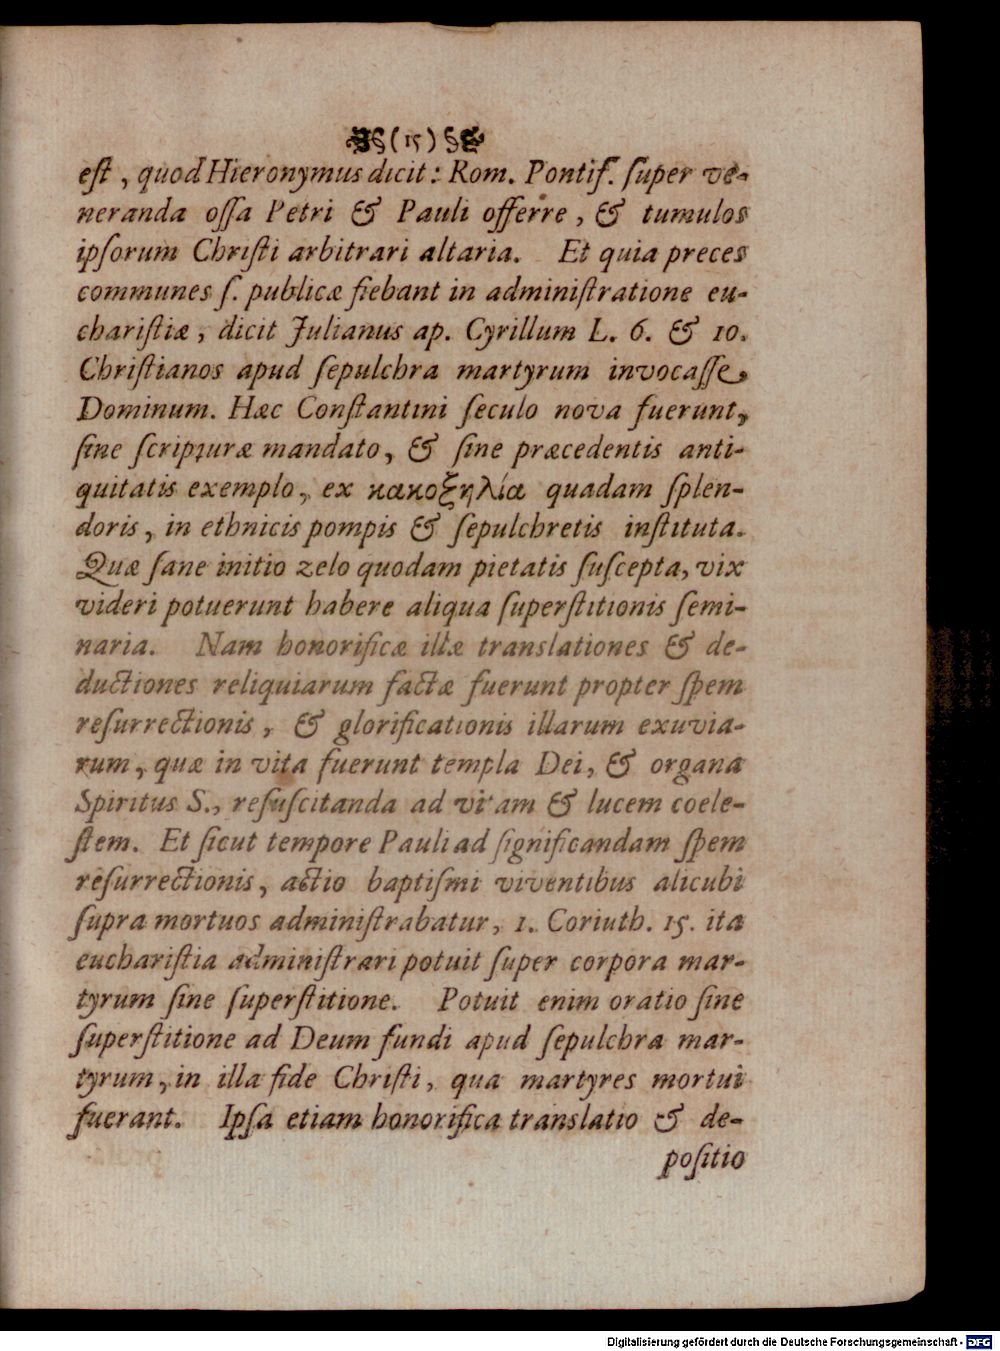 (15)
eſt, quod Hieronymus dicit: Rom. Pontif. ſuper ve-
neranda oſſa Petri & Pauli offerre, & tumulos
ipſorum Chriſti arbitrari altaria. Et quia preces
communes ſ. publicæ fiebant in adminiſtratione eu-
chariſtiæ, dicit Julianus ap. Cyrillum L. 6. & 10.
Chriſtianos apud ſepulchra martyrum invocaſſe
Dominum. Hæc Conſtantini ſeculo nova fuerunt,
ſine ſcripturæ mandato, & ſine præcedentis anti-
quitatis exemplo, ex κακοξηλία quadam ſplen-
doris, in ethnicis pompis & ſepulchretis inſtituta.
Quæ ſane initio zelo quodam pietatis ſuſcepta, vix
videri potuerunt habere aliqua ſuperſtitionis ſemi-
naria. Nam honorificæ illæ translationes & de-
ductiones reliquiarum factæ fuerunt propter ſpem
reſurrectionis, & glorificationis illarum exuvia-
rum, quæ in vita fuerunt templa Dei, & organa
Spiritus S., reſuſcitanda ad vitam & lucem coele-
ſtem. Et ſicut tempore Pauli ad ſignificandam ſpem
reſurrectionis, actio baptiſmi viventibus alicubi
ſupra mortuos adminiſtrabatur, 1. Coriuth. 15. ita
euchariſtia adminiſtrari potuit ſuper corpora mar-
tyrum ſine ſuperſtitione. Potuit enim oratio ſine
ſuperſtitione ad Deum fundi apud ſepulchra mar-
tyrum, in illa fide Chriſti, qua martyres mortui
fuerant. Ipſa etiam honorifica translatio & de-
poſitio
Digitalisierung gefördert durch die Deutsche Forschungsgemeinschaft - DFG